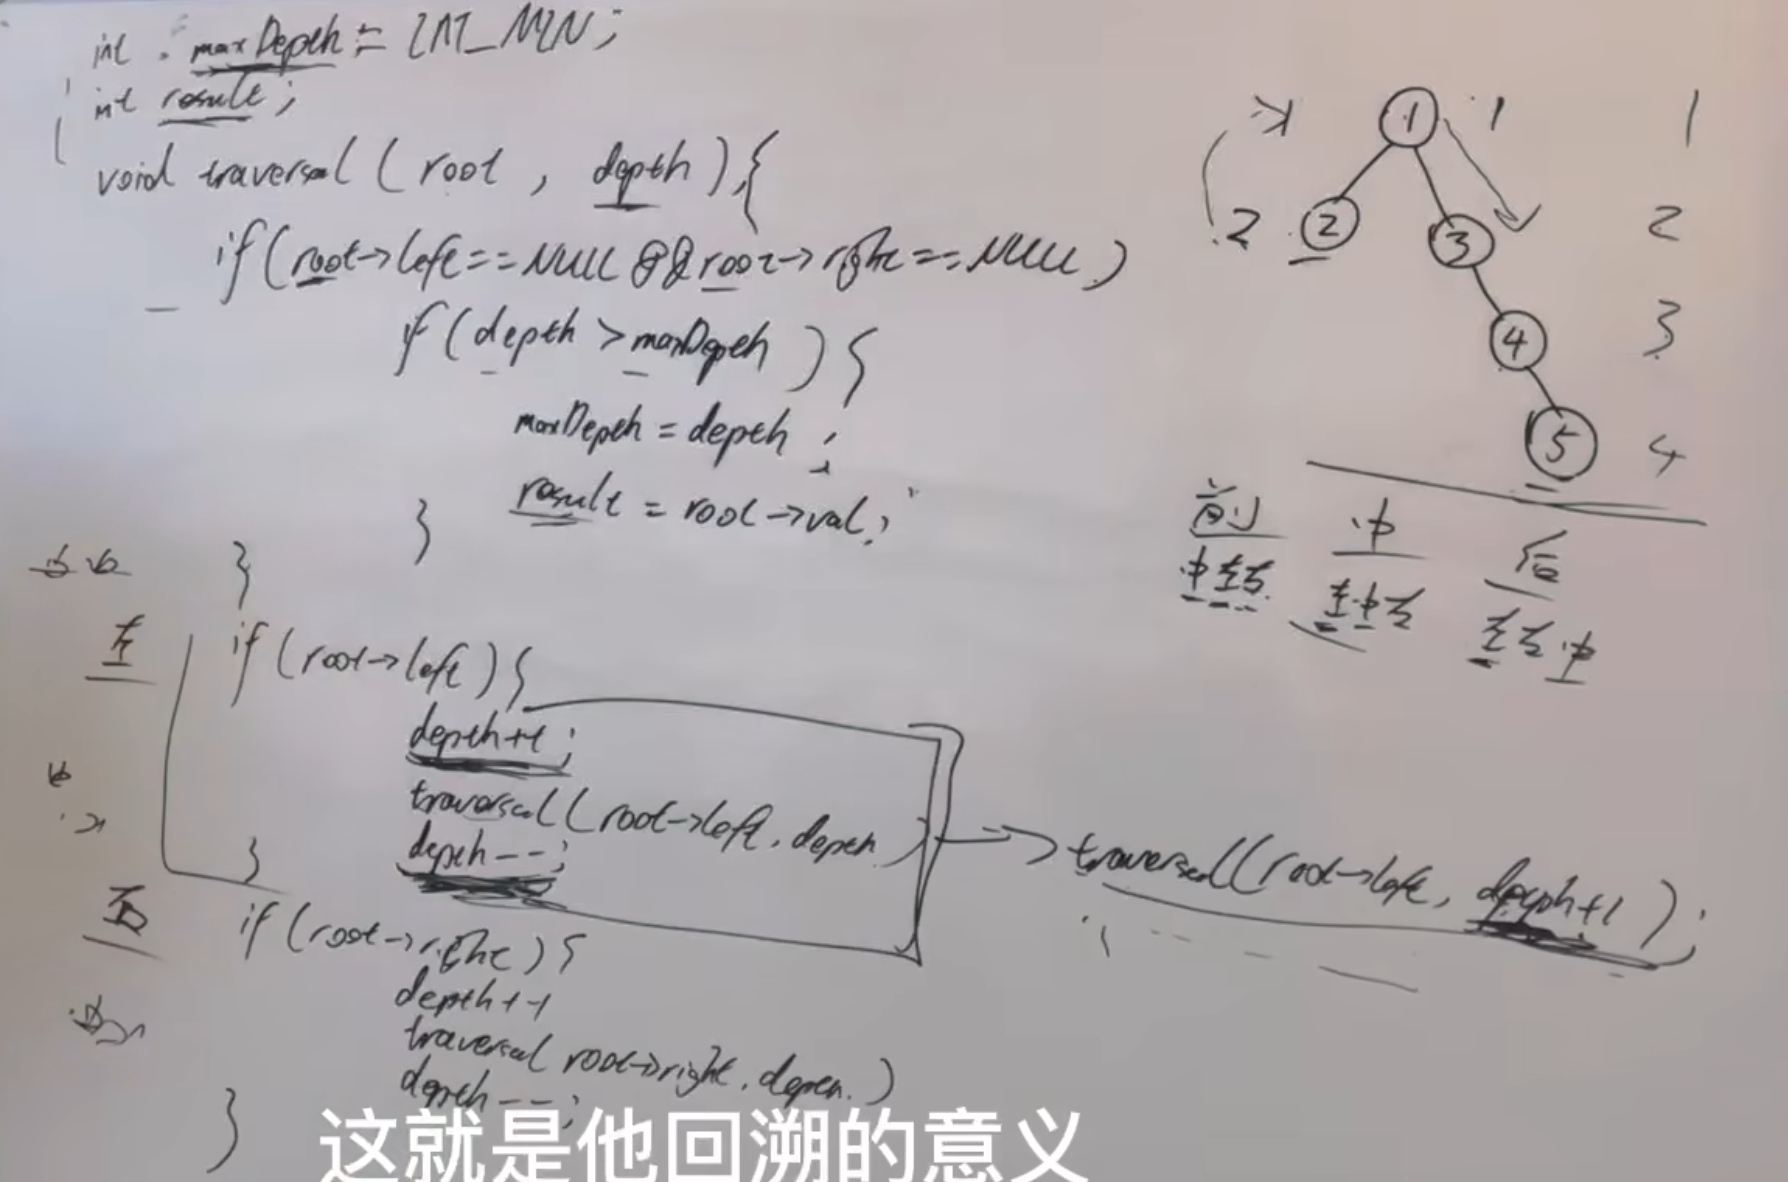 int maxDepth = INT_MIN;
int result;
void traversal (root, depth) {
if (root->left==NULL && root->right==NULL)
if (depth > maxDepth) {
maxDepth = depth;
result = root->val;
}
}
左
if (root->left) {
depth++;
traversal(root->left, depth)
depth--;
}
traversal(root->left, depth+1);
右
if (root->right) {
depth++
traversal(root->right, depth.)
depth--;
}
1 1 1
2 2 3 2
4 3
5 4
前 中 后
中左右 左中右 左右中
这就是他回溯的意义